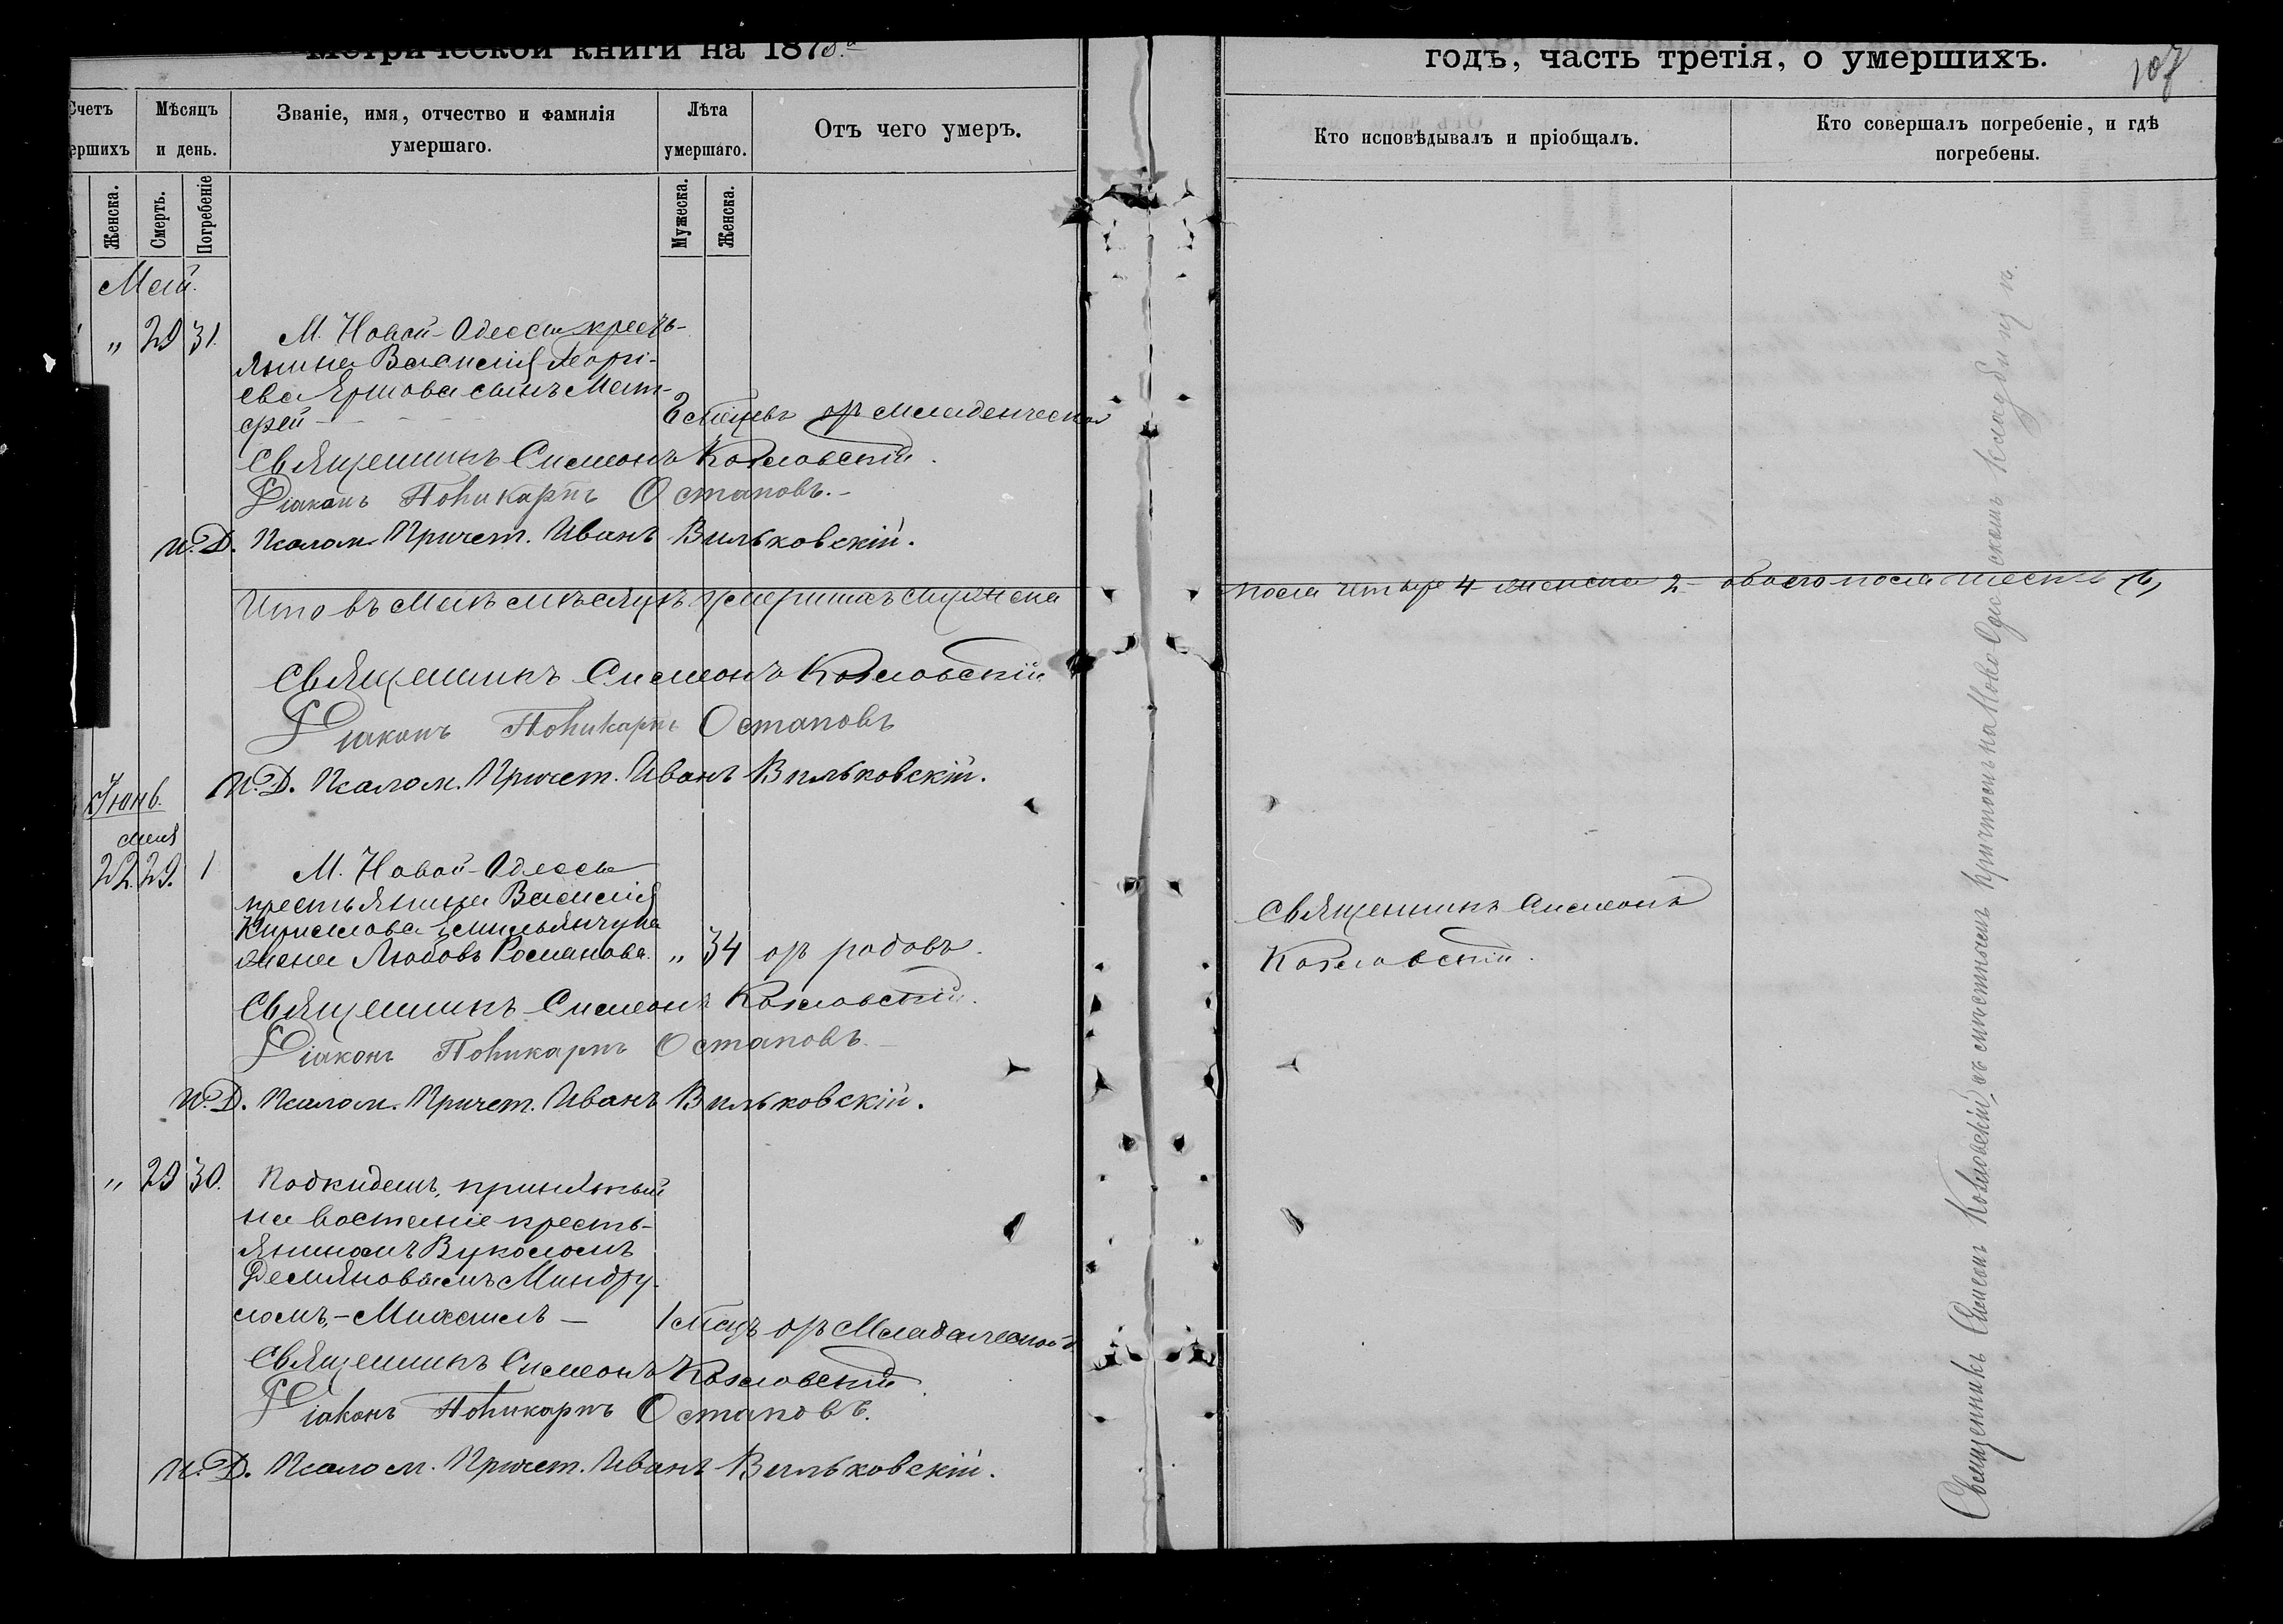 Метрической книги на 187
годъ, часть третія, о умершихъ.
107
Счетъ
ершихъ
Мѣсяцъ
и день.
Званіе, имя, отчество и фамилія
умершаго.
Лѣта
умершаго.
Отъ чего умеръ.
Кто исповѣдывалъ и пріобщалъ.
Кто совершалъ погребеніе, и гдѣ
погребены.
Женска.
Смерть.
Погребеніе
Мужеска.
Женска.
Май.
" 29 31. М. Новой-Одессы кресть-
янина Василія Георгі-
ева Ершова сынъ Мат-
фей - мѣсяцъ отъ младенческой
Священникъ Симеонъ Козловскій.
Діаконъ Поликарпъ Остаповъ.-
И.Д. Псалом. Причет. Иванъ Вильковскій.
Итого въ Маѣ мѣсяцѣ умершихъ мужеска
пола четыре 4 женска 2 обоего пола шесть (6)
Священникъ Симеонъ Козловскій
Діаконъ Поликарпъ Остаповъ
И.Д. Псалом. Причет. Иванъ Вильковскій.
Іюнь.
Мая
22. 29. 1 М. Новой-Одессы
крестьянина Василія
Кириллова Емильянчука
жена Любовь Романова. " 34 отъ родовъ.
Священникъ Симеонъ
Козловскій.
Священникъ Симеонъ Козловскій.
Діаконъ Поликарпъ Остаповъ.-
И.Д. Псалом. Причет. Иванъ Вильковскій.
" 29 30. Подкидышъ, принятый
на воспитаніе кресть-
яниномъ Вуколомъ
Демяновымъ Миндру-
ломъ,-Михаилъ - 1 мѣсяцъ отъ Младенческой
Священникъ Симеонъ Козловскій
Діаконъ Поликарпъ Остаповъ.
И.Д. Псалом. Причет. Иванъ Вильковскій.
Священникъ Симеонъ Козловскій, съ мѣстнымъ причтомъ на Ново Одесскомъ кладбищѣ.